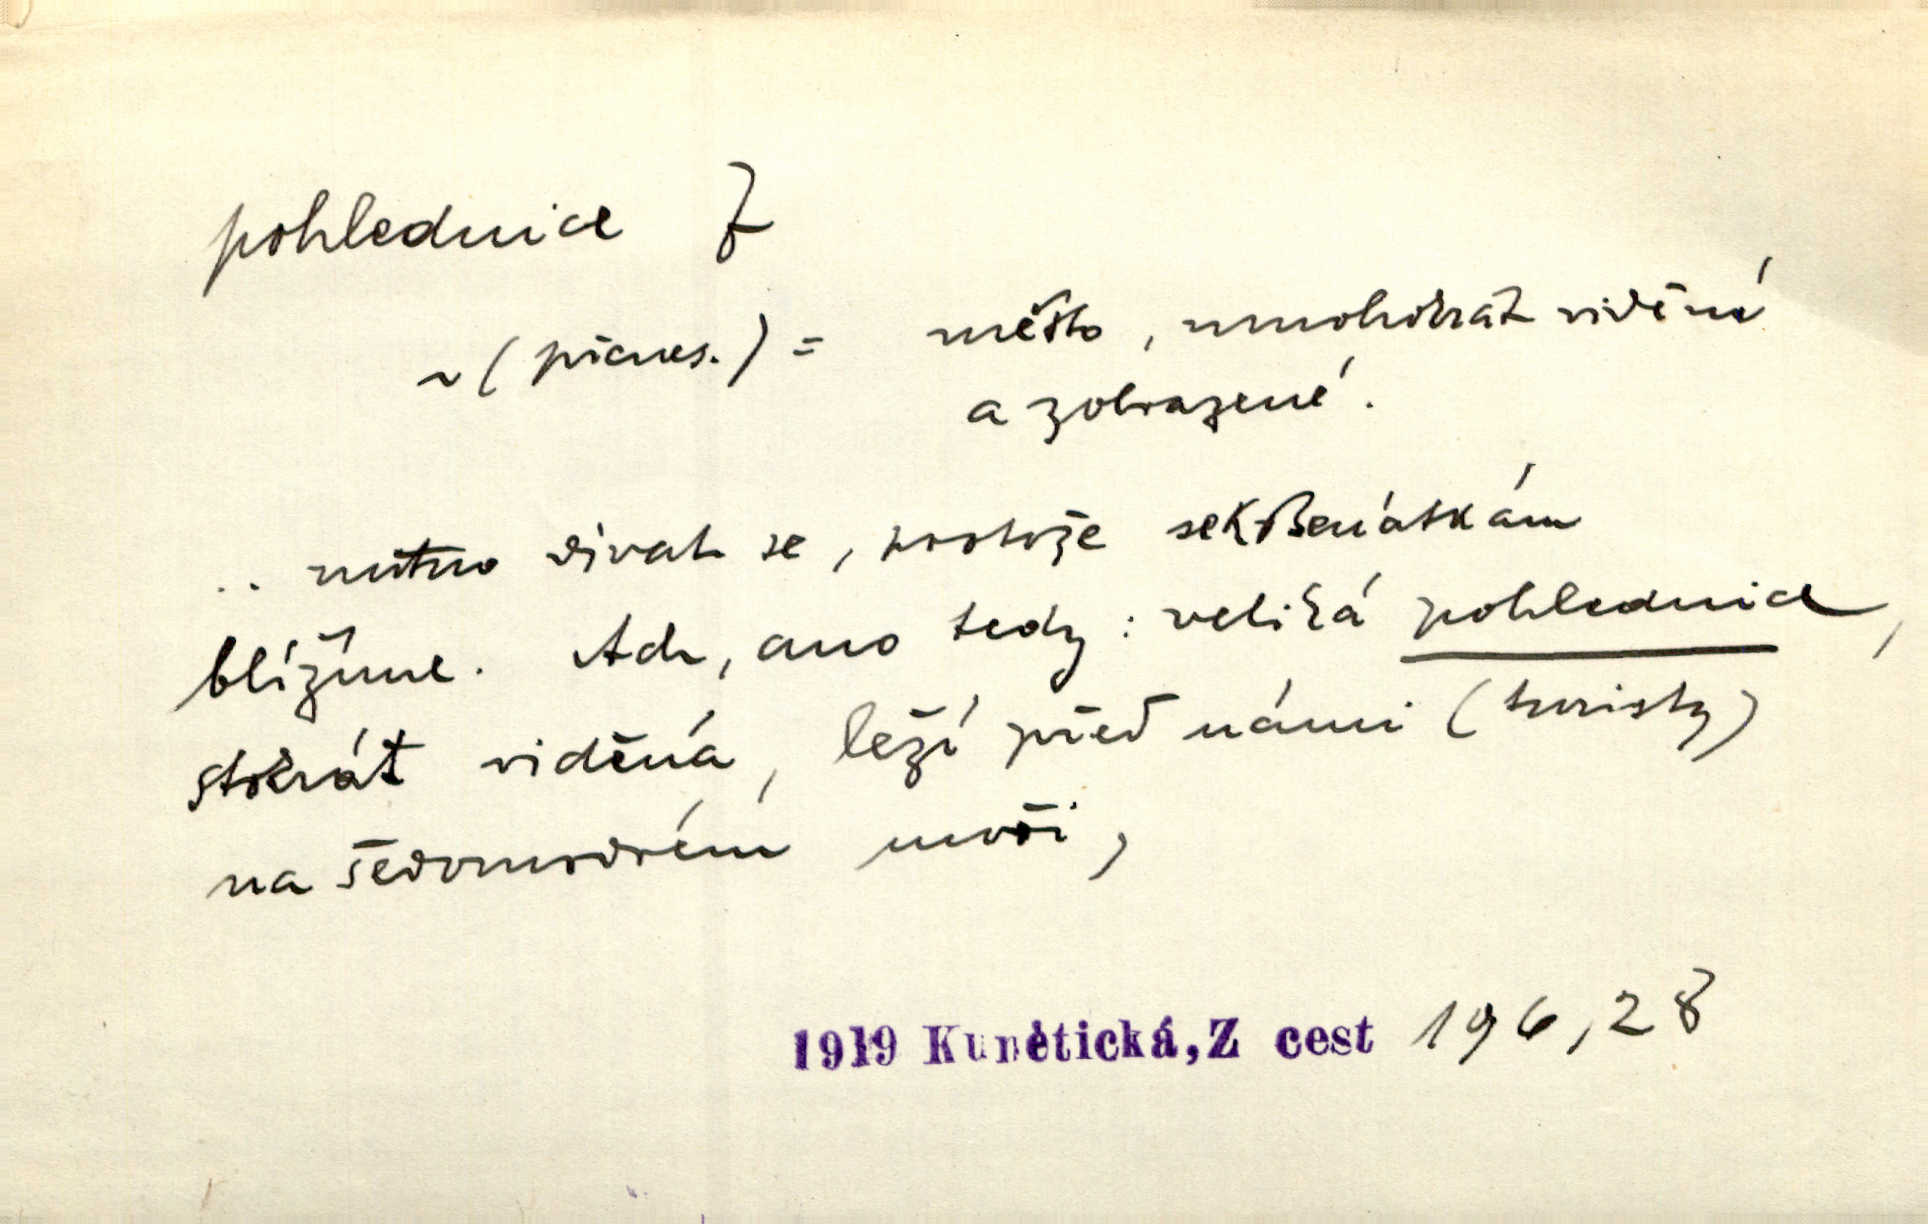 pohlednice F
~ (přenes.) = město, mnohokrát viděné
a zobrazené.
.. nutno dívat se, protože se k Benátkám
blížíme. Ach, ano tedy: veliká pohlednice,
stokrát viděná, leží před námi (turisty)
na šedomodrém moři,
1919 Kunětická, Z cest 196,28